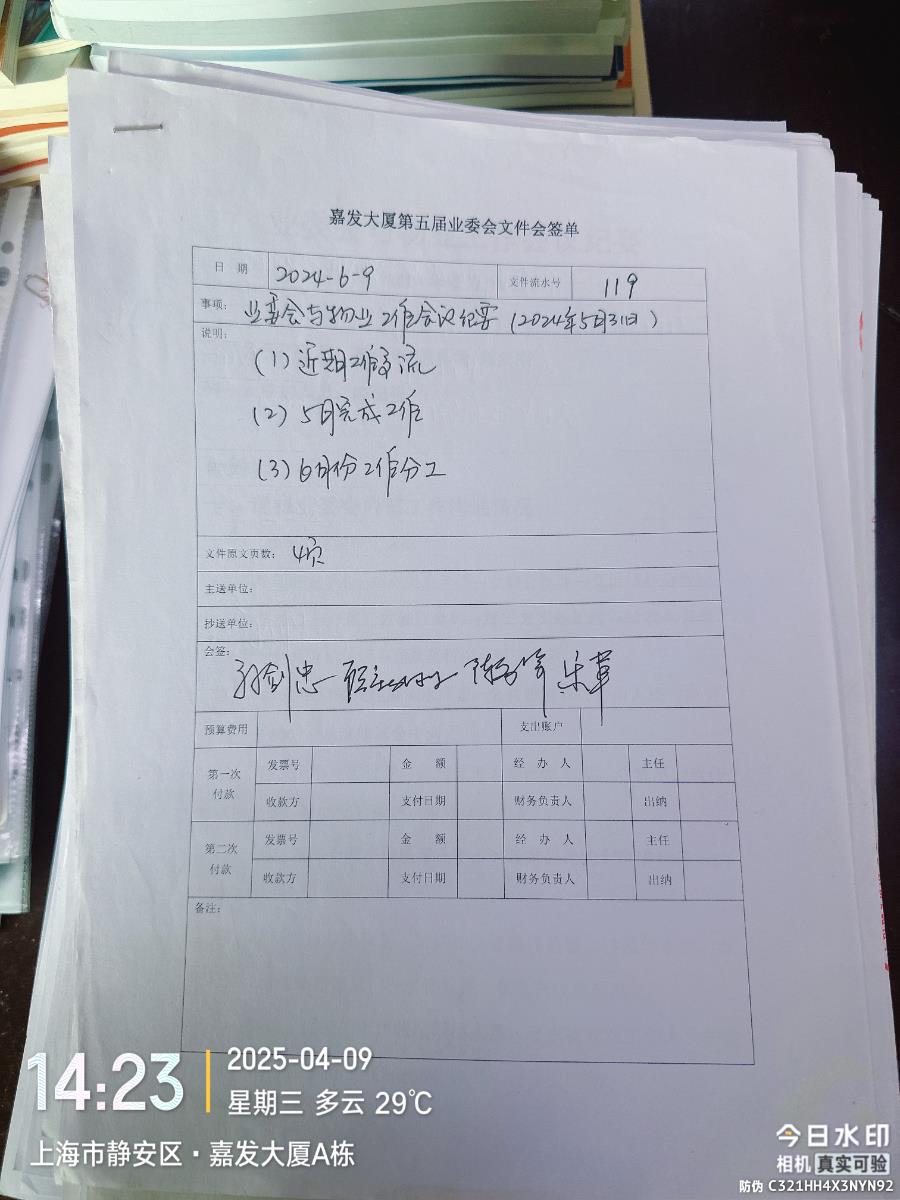 嘉发大厦第五届业委会文件会签单
日 期 2024-6-9 文件流水号 119
事项: 业委会与物业工作会议纪要 (2024年5月31日)
说明:
(1) 近期工作交流
(2) 5月完成工作
(3) 6月份工作分工
文件原文页数: 4页
主送单位:
抄送单位:
会签:
预算费用 支出账户
第一次付款 发票号 金 额 经 办 人 主任
收款方 支付日期 财务负责人 出纳
第二次付款 发票号 金 额 经 办 人 主任
收款方 支付日期 财务负责人 出纳
备注:
14:23
2025-04-09
星期三 多云 29℃
上海市静安区·嘉发大厦A栋
今日水印
相机 真实可验
防伪 C321HH4X3NYN92